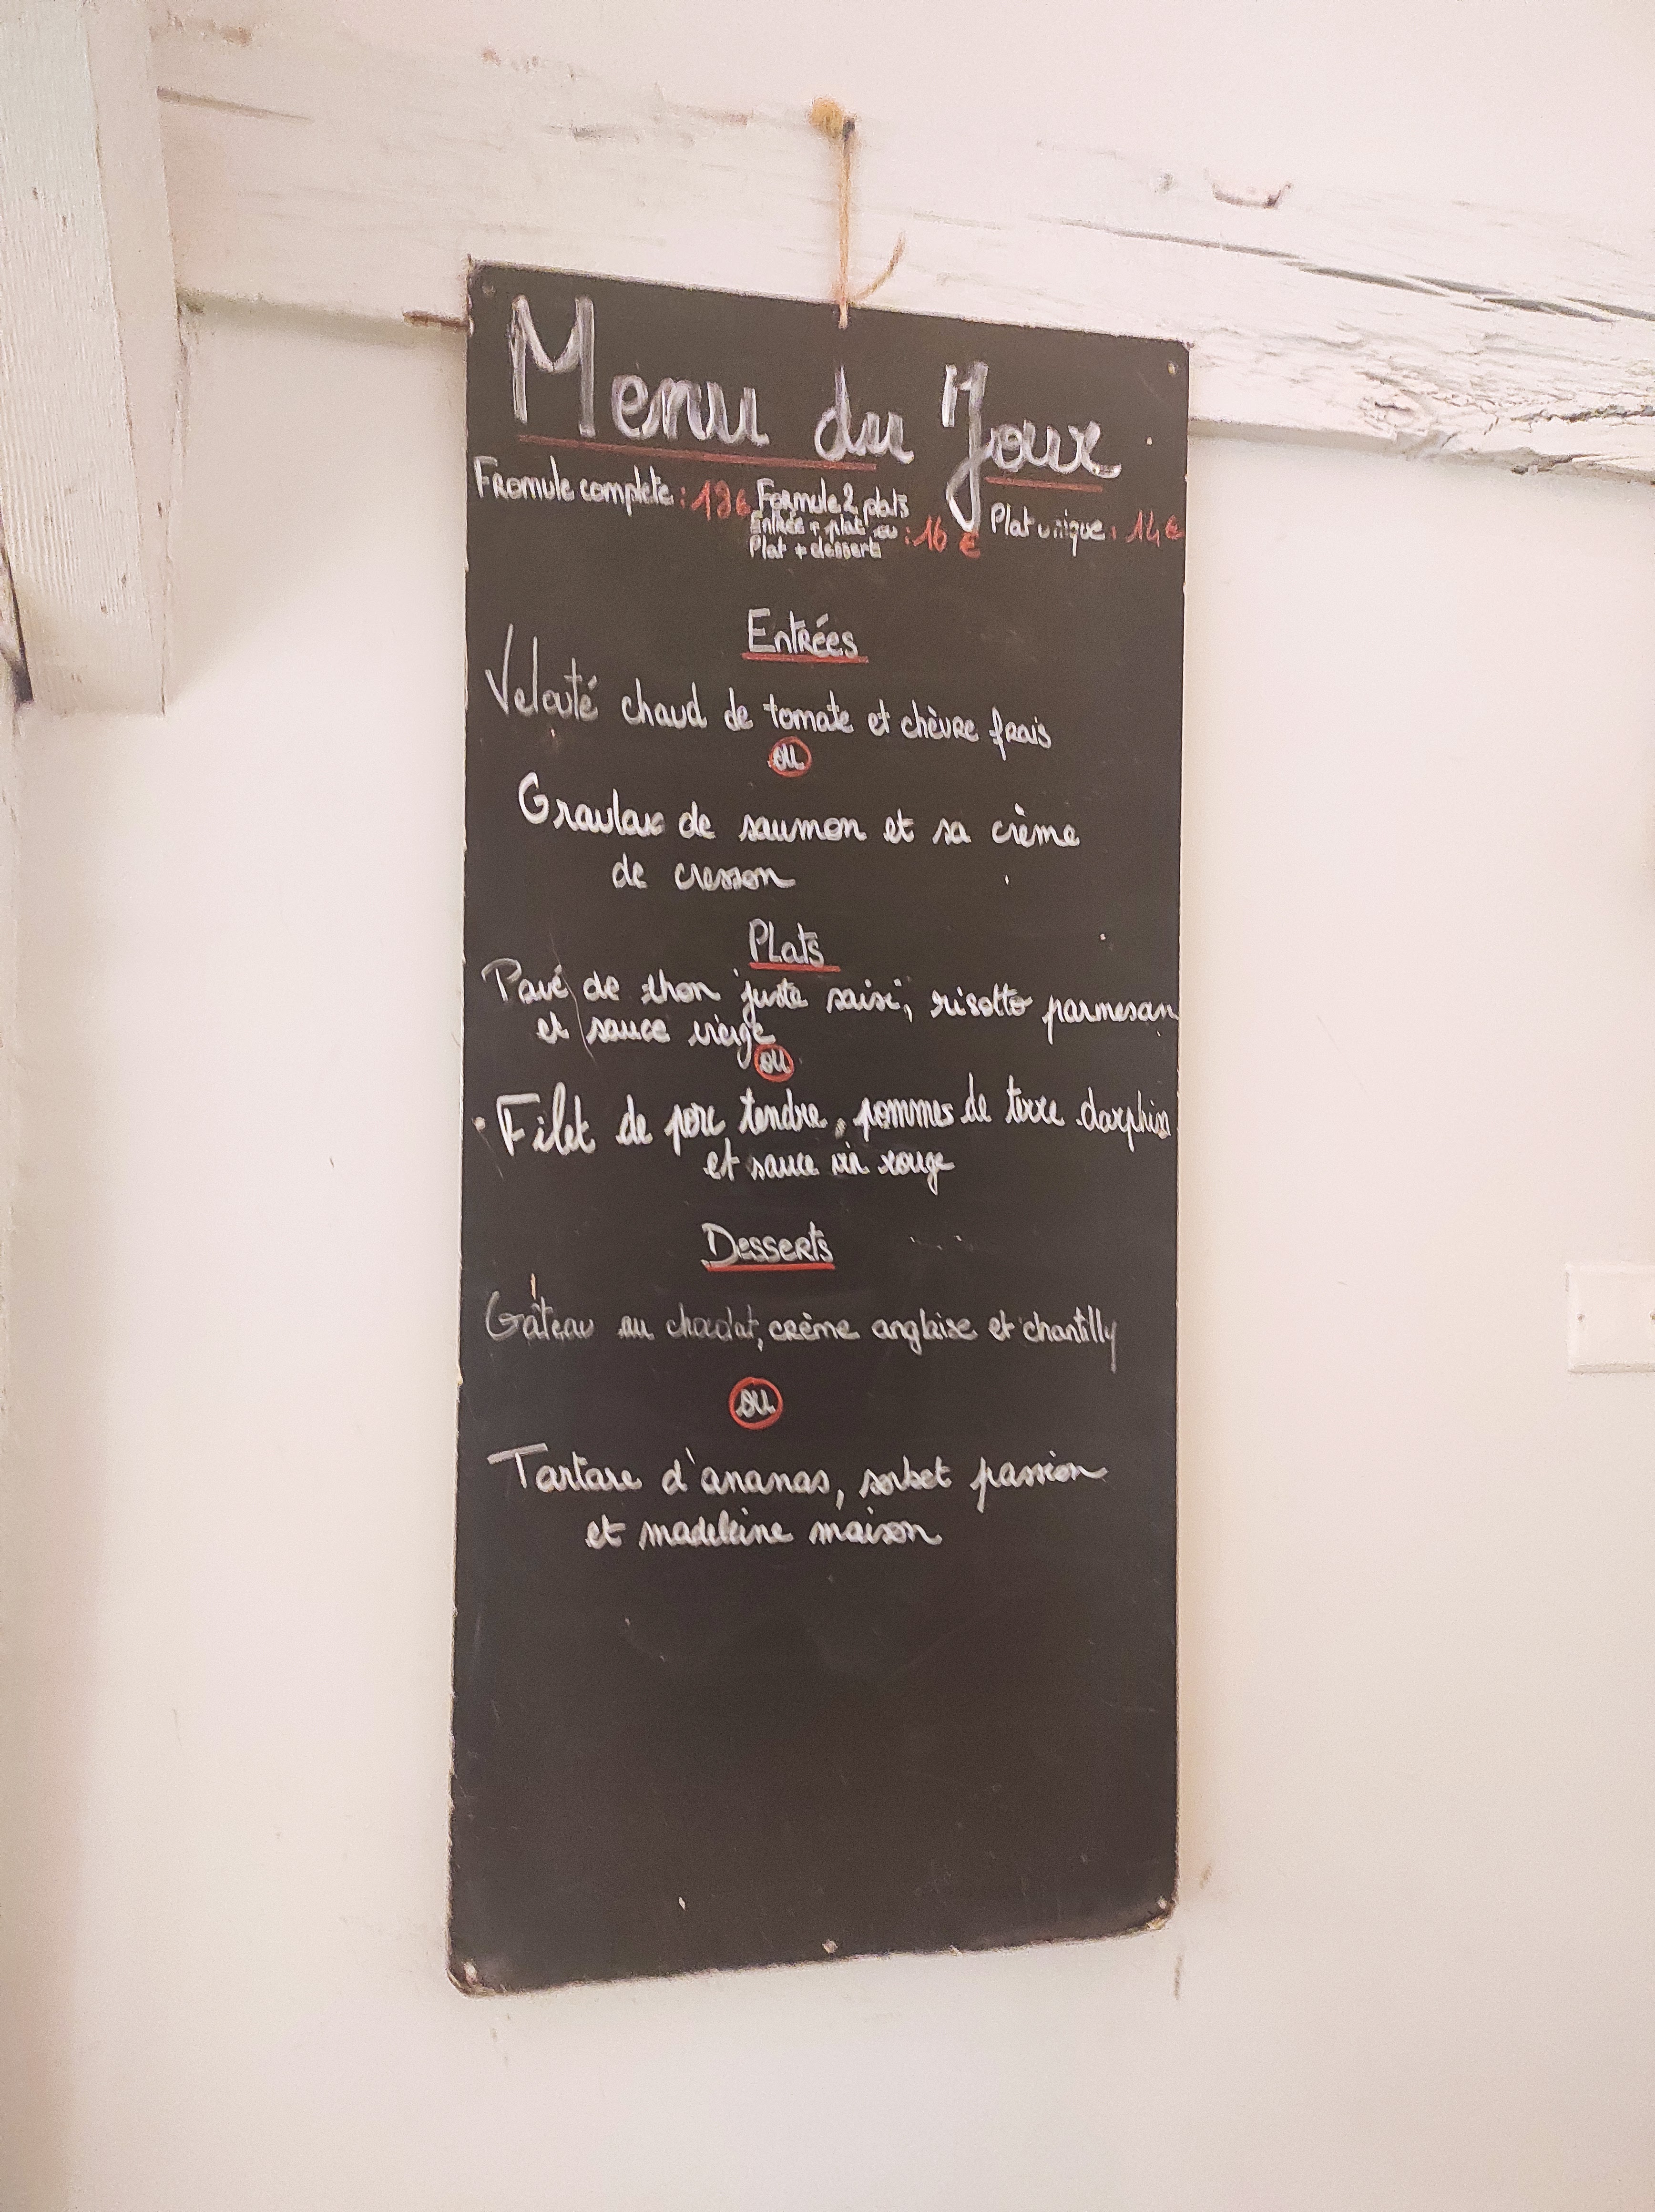 Menu du Jour
Fromule complète : 18€
Formule 2 plats
Entrée + plat ou
Plat + dessert
: 16 €
Plat unique : 14€
Entrées
Velouté chaud de tomate et chèvre frais
ou
Gravlax de saumon et sa crème
de cresson
Plats
Pavé de thon "juste saisi", risotto parmesan
et sauce vierge
ou
Filet de porc tendre, pommes de terre darphin
et sauce vin rouge
Desserts
Gâteau au chocolat, crème anglaise et chantilly
ou
Tartare d'ananas, sorbet passion
et madeleine maison